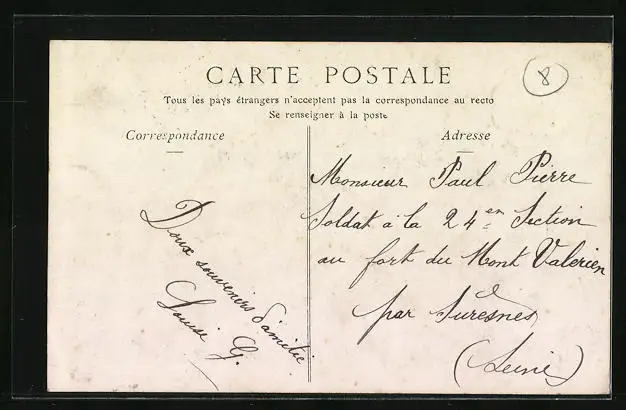 CARTE POSTALE
8
Tous les pays étrangers n'acceptent pas la correspondance au recto
Se renseigner à la poste
Correspondance
Doux souvenirs d'amitié
Louise G.
Adresse
Monsieur Paul Pierre
Soldat à la 24en Section
au fort du Mont Valerien
par Suresnes
(Seine)